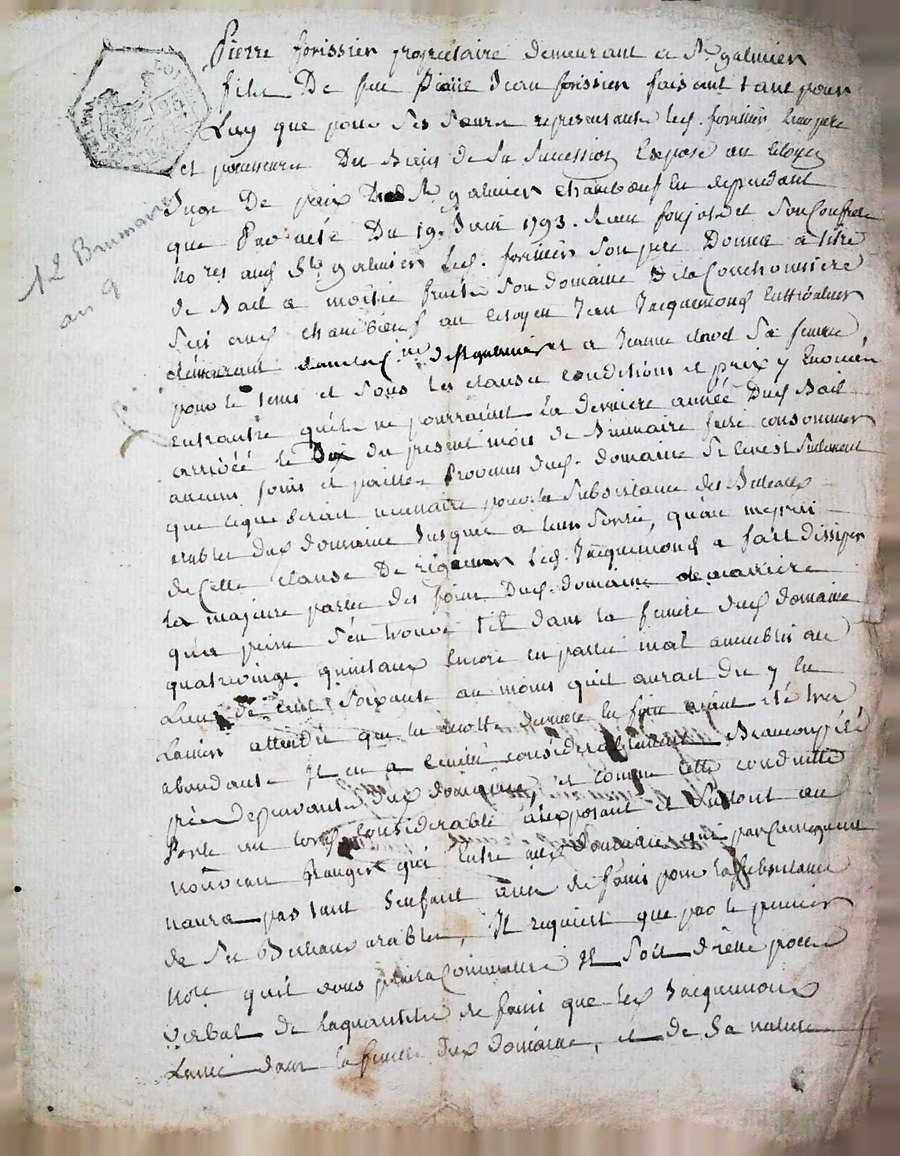 Pierre forissier propriétaire demeurant a St galmier
fils De feu Pierre Jean forissier faisant tant pour
Luy que pour Ses Sœurs représentants led. forissier Leur père
et poursuivre Du Biens de Sa Succession Expose au Citoyen
Juge De paix De St galmier Chambœuf En dependant
que Par acte Du 19. Juin 1793. Recu et Son Confrere
No res aud St galmier Led. forissier Son pere Donna a titre
de Bail a moitié fruits Son domaine De la Couchonniere
Situé aud chambœuf au Citoyen Jean Jacquemond Cultivateur
demeurant St galmier et a Jeanne Sa femme
pour le tems et Sous les clauses conditions et prix y Enoncés
Entrautre quils ne pourraient La derniere année Dud Bail
arrivée le Dix du présent mois de Brumaire faire consommer
aucuns foins et pailles Provenus dud. domaine Si ce nest Seulement
que ce qui Serait necessaire pour la Subsistance des Bestiaux
arables dud domaine Jusques a leur Sortie, quau mepris
de Cette clause De rigueur Led. Jacquemond a fait dissiper
La majeure partie des foins Dud. domaine de maniere
qua peine Sen trouve til dans la feniere dud domaine
quatrevingt quintaux Encore En partie mal ameublis au
Lieu de Cent Soixante au moins quil aurait du y En
Laisser attendu que la recolte derniere En foin aiant été tres
abondante Il en a Cueilli considerablement Beaucoup
près dependants dud domaine, et comme Cette conduitte
Porte un tort Considerable a lexposant et Surtout au
nouveau Granger qui Entre aud Domaine qui par Consequent
naura pas tant Senfaut de foins pour la Subsistance
de Ses Bestiaux arables, Il requiert que par le premier
Note quil vous plaira Commettre Il Soit dressé procès
Verbal de la quantité de foins que led Jacquemond
Laissé dans la feniere dud domaine, et de Sa nature
12 Brumaire
an 9